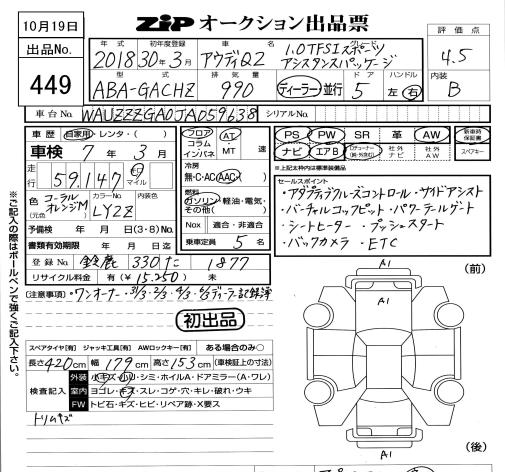 10月19日
ZIP オークション出品票
出品No.
449
年式 初年度登録 車名 グレード 評価点
2018 30年3月 アウディQ2 1.0TFSIスポーツ
アシスタンスパッケージ 4.5
型式 排気量 ドア ハンドル 内装
ABA-GACHZ 990 ディーラー・並行 5 左 右 B
車台No. WAUZZZGA0JA059638 シリアルNo.
車歴 自家用・レンタ・( )
車検 7年3月
走行 59,147 km マイル
色(元色) コーラルオレンジM カラーNo. LY2Z 内装色
予備検 年 月 日 (3・8)No.
書類有効期限 年 月 日迄
登録No. 鈴鹿 330 た 1877
リサイクル料金 有(¥15,250) 未
フロア コラム インパネ AT・MT 速
冷房 無・C・AC・AAC
燃料 ガソリン・軽油・電気・その他( )
Nox 適合・非適合
乗車定員 5名
PS PW SR 革 AW 新車時保証書
ナビ エアB 社外ナビ 社外AW スペアキー
※上記太枠内は標準装備品
セールスポイント
・アダプティブクルーズコントロール・サイドアシスト
・バーチャルコックピット・パワーテールゲート
・シートヒーター・プッシュスタート
・バックカメラ・ETC
(注意事項) ・ワンオーナー・3/3・2/3・4/3・6/3ディーラー記録簿
初出品
スペアタイヤ[有] ジャッキ工具[有] AWロックキー[有] ある場合のみ○
長さ420cm 幅179cm 高さ153cm (車検証上の寸法)
検査記入
外装 小キズ・小凹・シミ・ホイルA・ドアミラー(A・ワレ)
室内 ヨゴレ・キズ・スレ・コゲ・穴・キレ・破れ・ウキ
FW トビ石・キズ・ヒビ・リペア跡・X要ス
トリムキズ
A1
(前)
A1
A1
(後)
※ご記入の際はボールペンで強くご記入下さい。